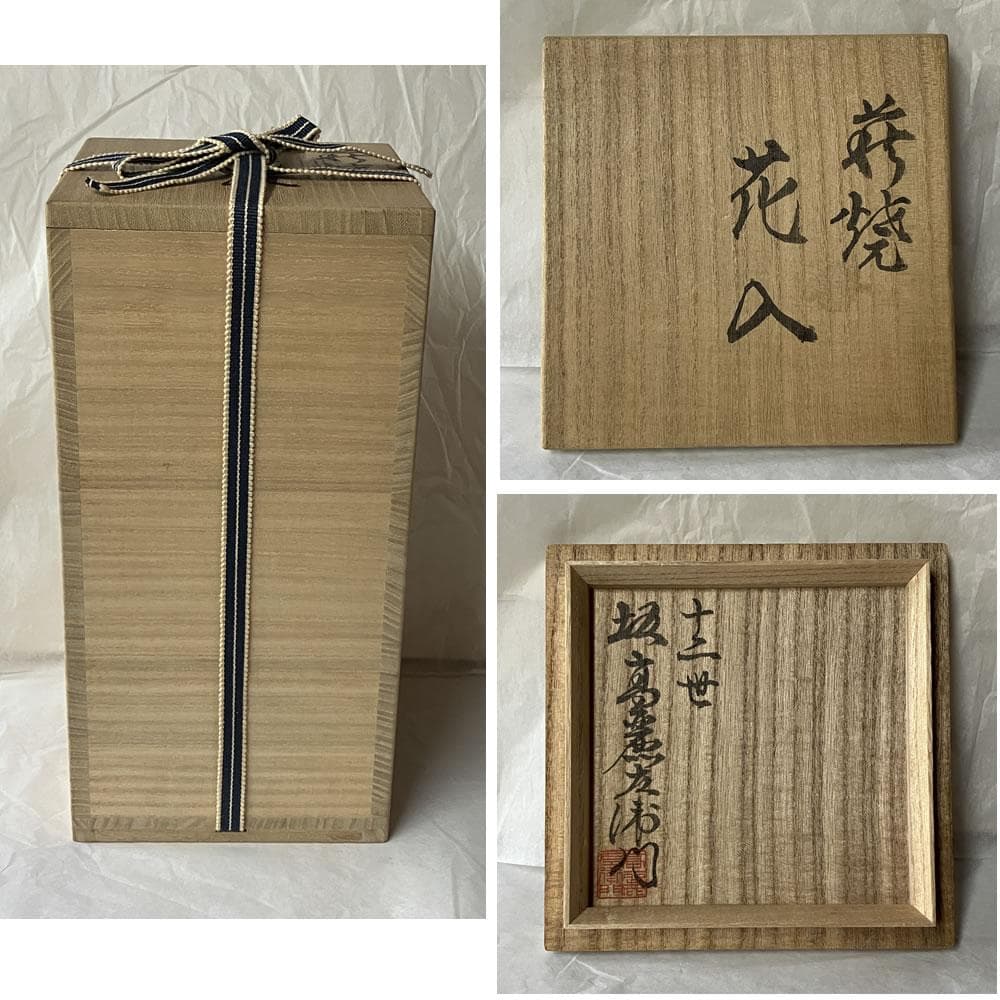 萩焼
花入
十二世
坂高麗左衛門